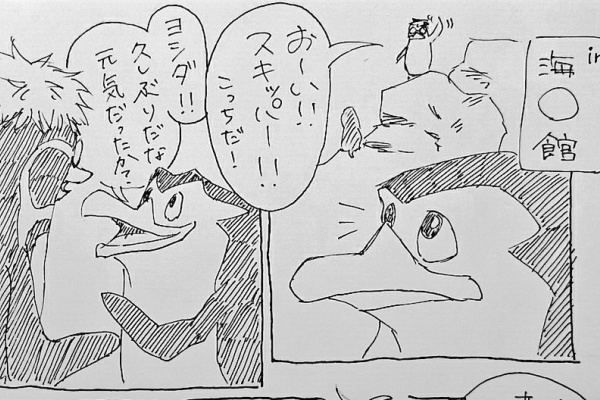 in
海〇館
おーい!!
スキッパー!!
こっちだ!
ヨシダ!!
久しぶりだな
元気だったか?